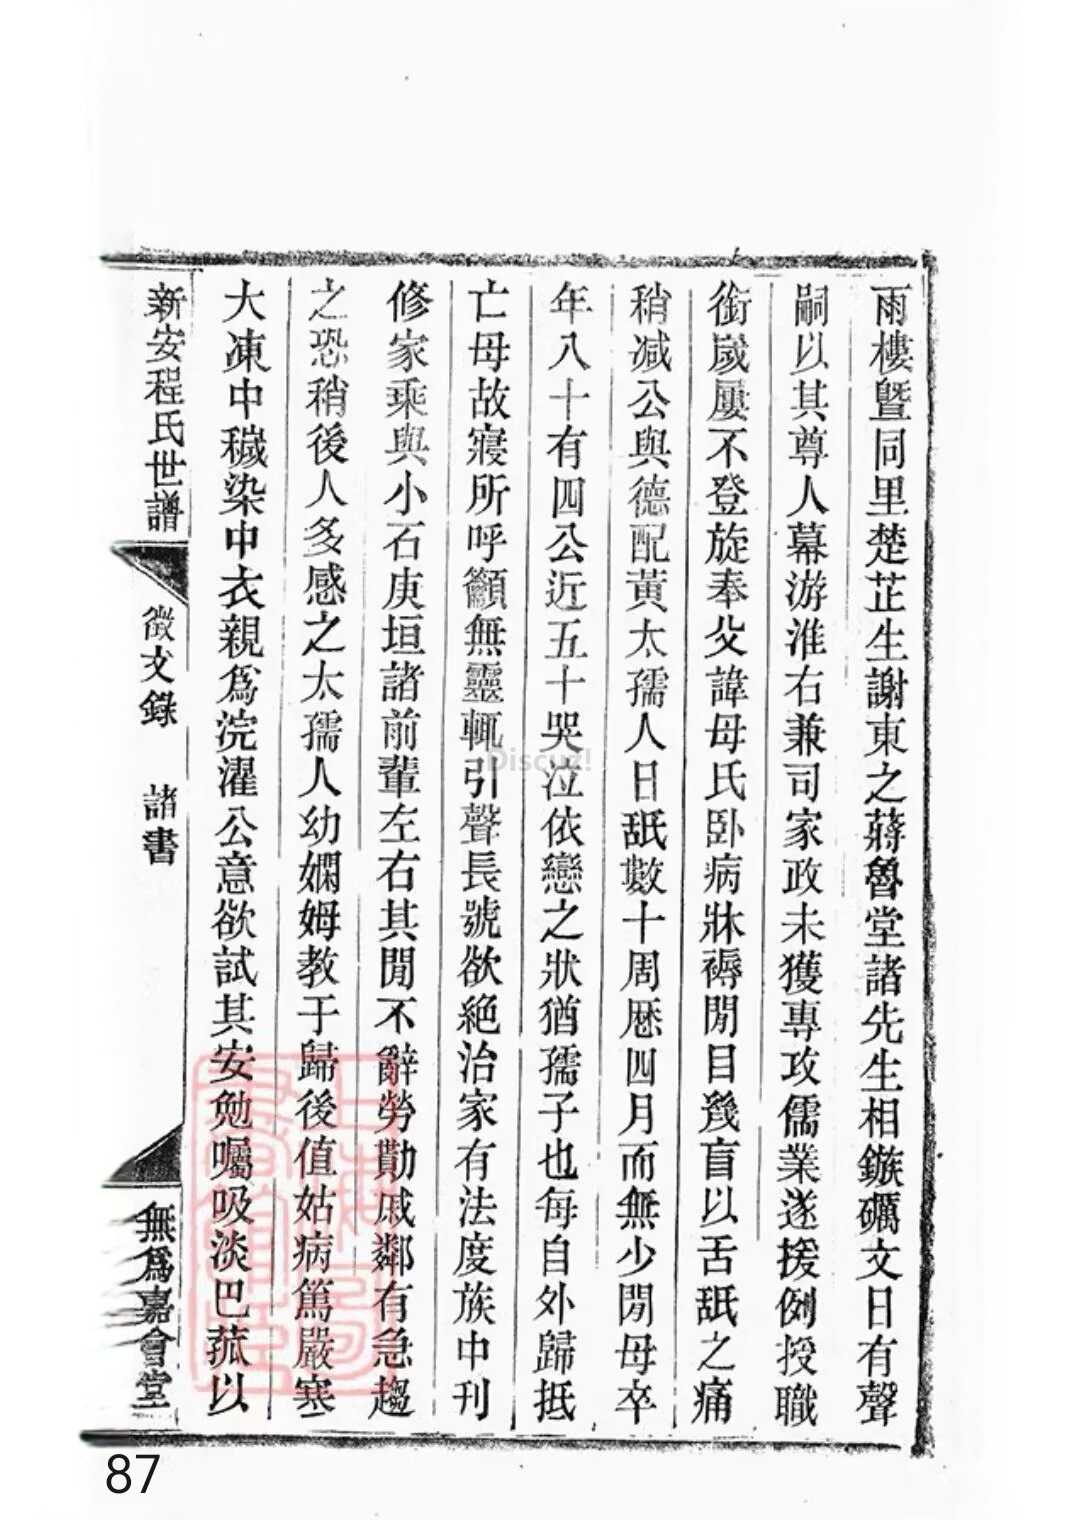 雨樓暨同里楚芷生謝東之蔣魯堂諸先生相鏃礪文日有聲
嗣以其尊人幕游淮右兼司家政未獲專攻儒業遂援例授職
銜嵗屢不登旋奉父諱母氏卧病牀褥閒目幾盲以舌舐之痛
稍减公與德配黃太孺人日舐數十周厯四月而無少閒母卒
年八十有四公近五十哭泣依戀之狀猶孺子也每自外歸抵
亡母故寢所呼籲無靈輒引聲長號欲絶治家有法度族中刊
修家乘與小石庚垣諸前輩左右其閒不辭勞勩戚鄰有急趨
之恐稍後人多感之太孺人幼嫻姆教于歸後值姑病篤嚴寒
大凍中穢染中衣親爲浣濯公意欲試其安勉囑吸淡巴菰以
新安程氏世譜 徵文錄 諸書 無爲嘉會堂
Discuz!
87